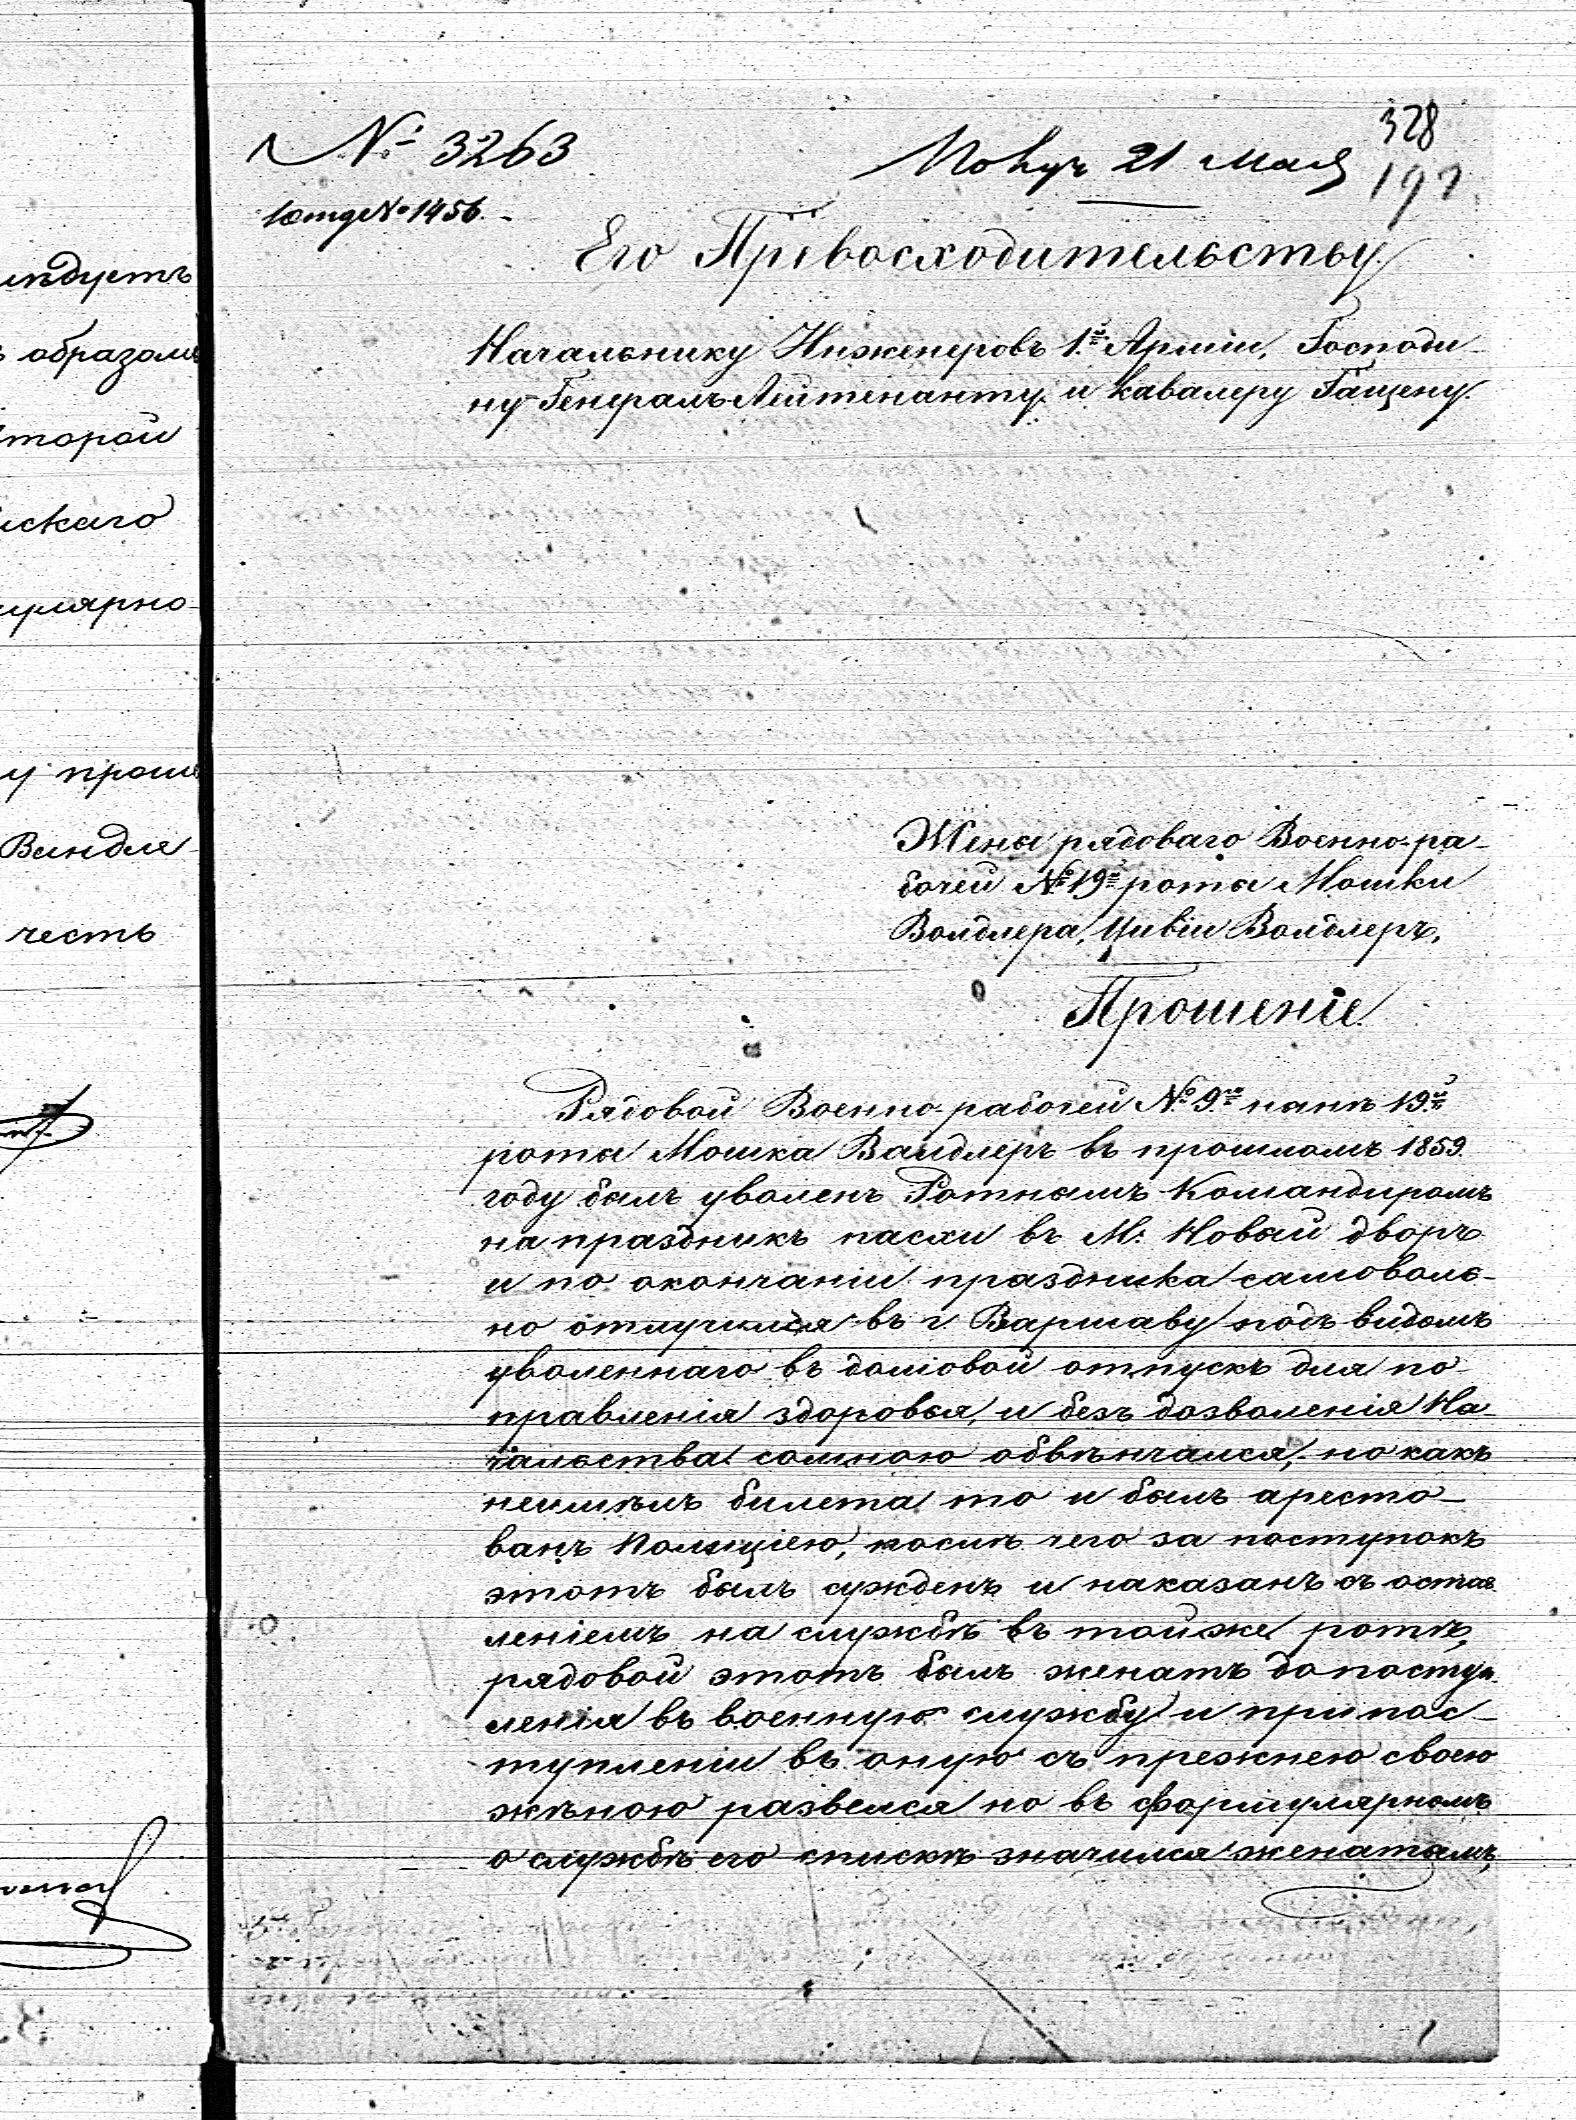 № 3263
328
Получ 21 Мая
1 отд № 1456.
Его Превосходительству
Начальнику Инженеровъ 1.й Арміи, Господи-
ну Генералъ Лейтенанту и кавалеру Гащену.
Жены рядоваго Военно-ра-
бочей № 19й роты Мошки
Вандлера, Цивіи Вандлеръ,
Прошеніе
Рядовой Военно рабочей № 9.й нынѣ 19.й
роты Мошка Вандлеръ въ прошломъ 1859
году былъ уволенъ Ротнымъ Командиромъ
на праздникъ пасхи въ М. Новый дворъ
и по окончаніи праздника самоволь-
но отлучился въ г Варшаву подъ видомъ
уволеннаго въ домовой отпускъ для по-
правленія здоровья, и безъ дозволенія На-
чальства сомною обвѣнчался, но какъ
неимѣлъ билета то и былъ аресто-
ванъ Полиціею, послѣ чего за поступокъ
этотъ былъ сужденъ и наказанъ съ остав
леніемъ на службѣ въ тойже ротѣ,
рядовой этотъ былъ женатъ до поступ
ленія въ военную службу и при пос-
тупленіи въ оную съ прежнею своею
жѣною развелся но въ формулярномъ
о службѣ его спискѣ значился женатымъ,
ѣдуетъ
образомъ
торой
скаго
улярно
у прошe
Вандле
честь